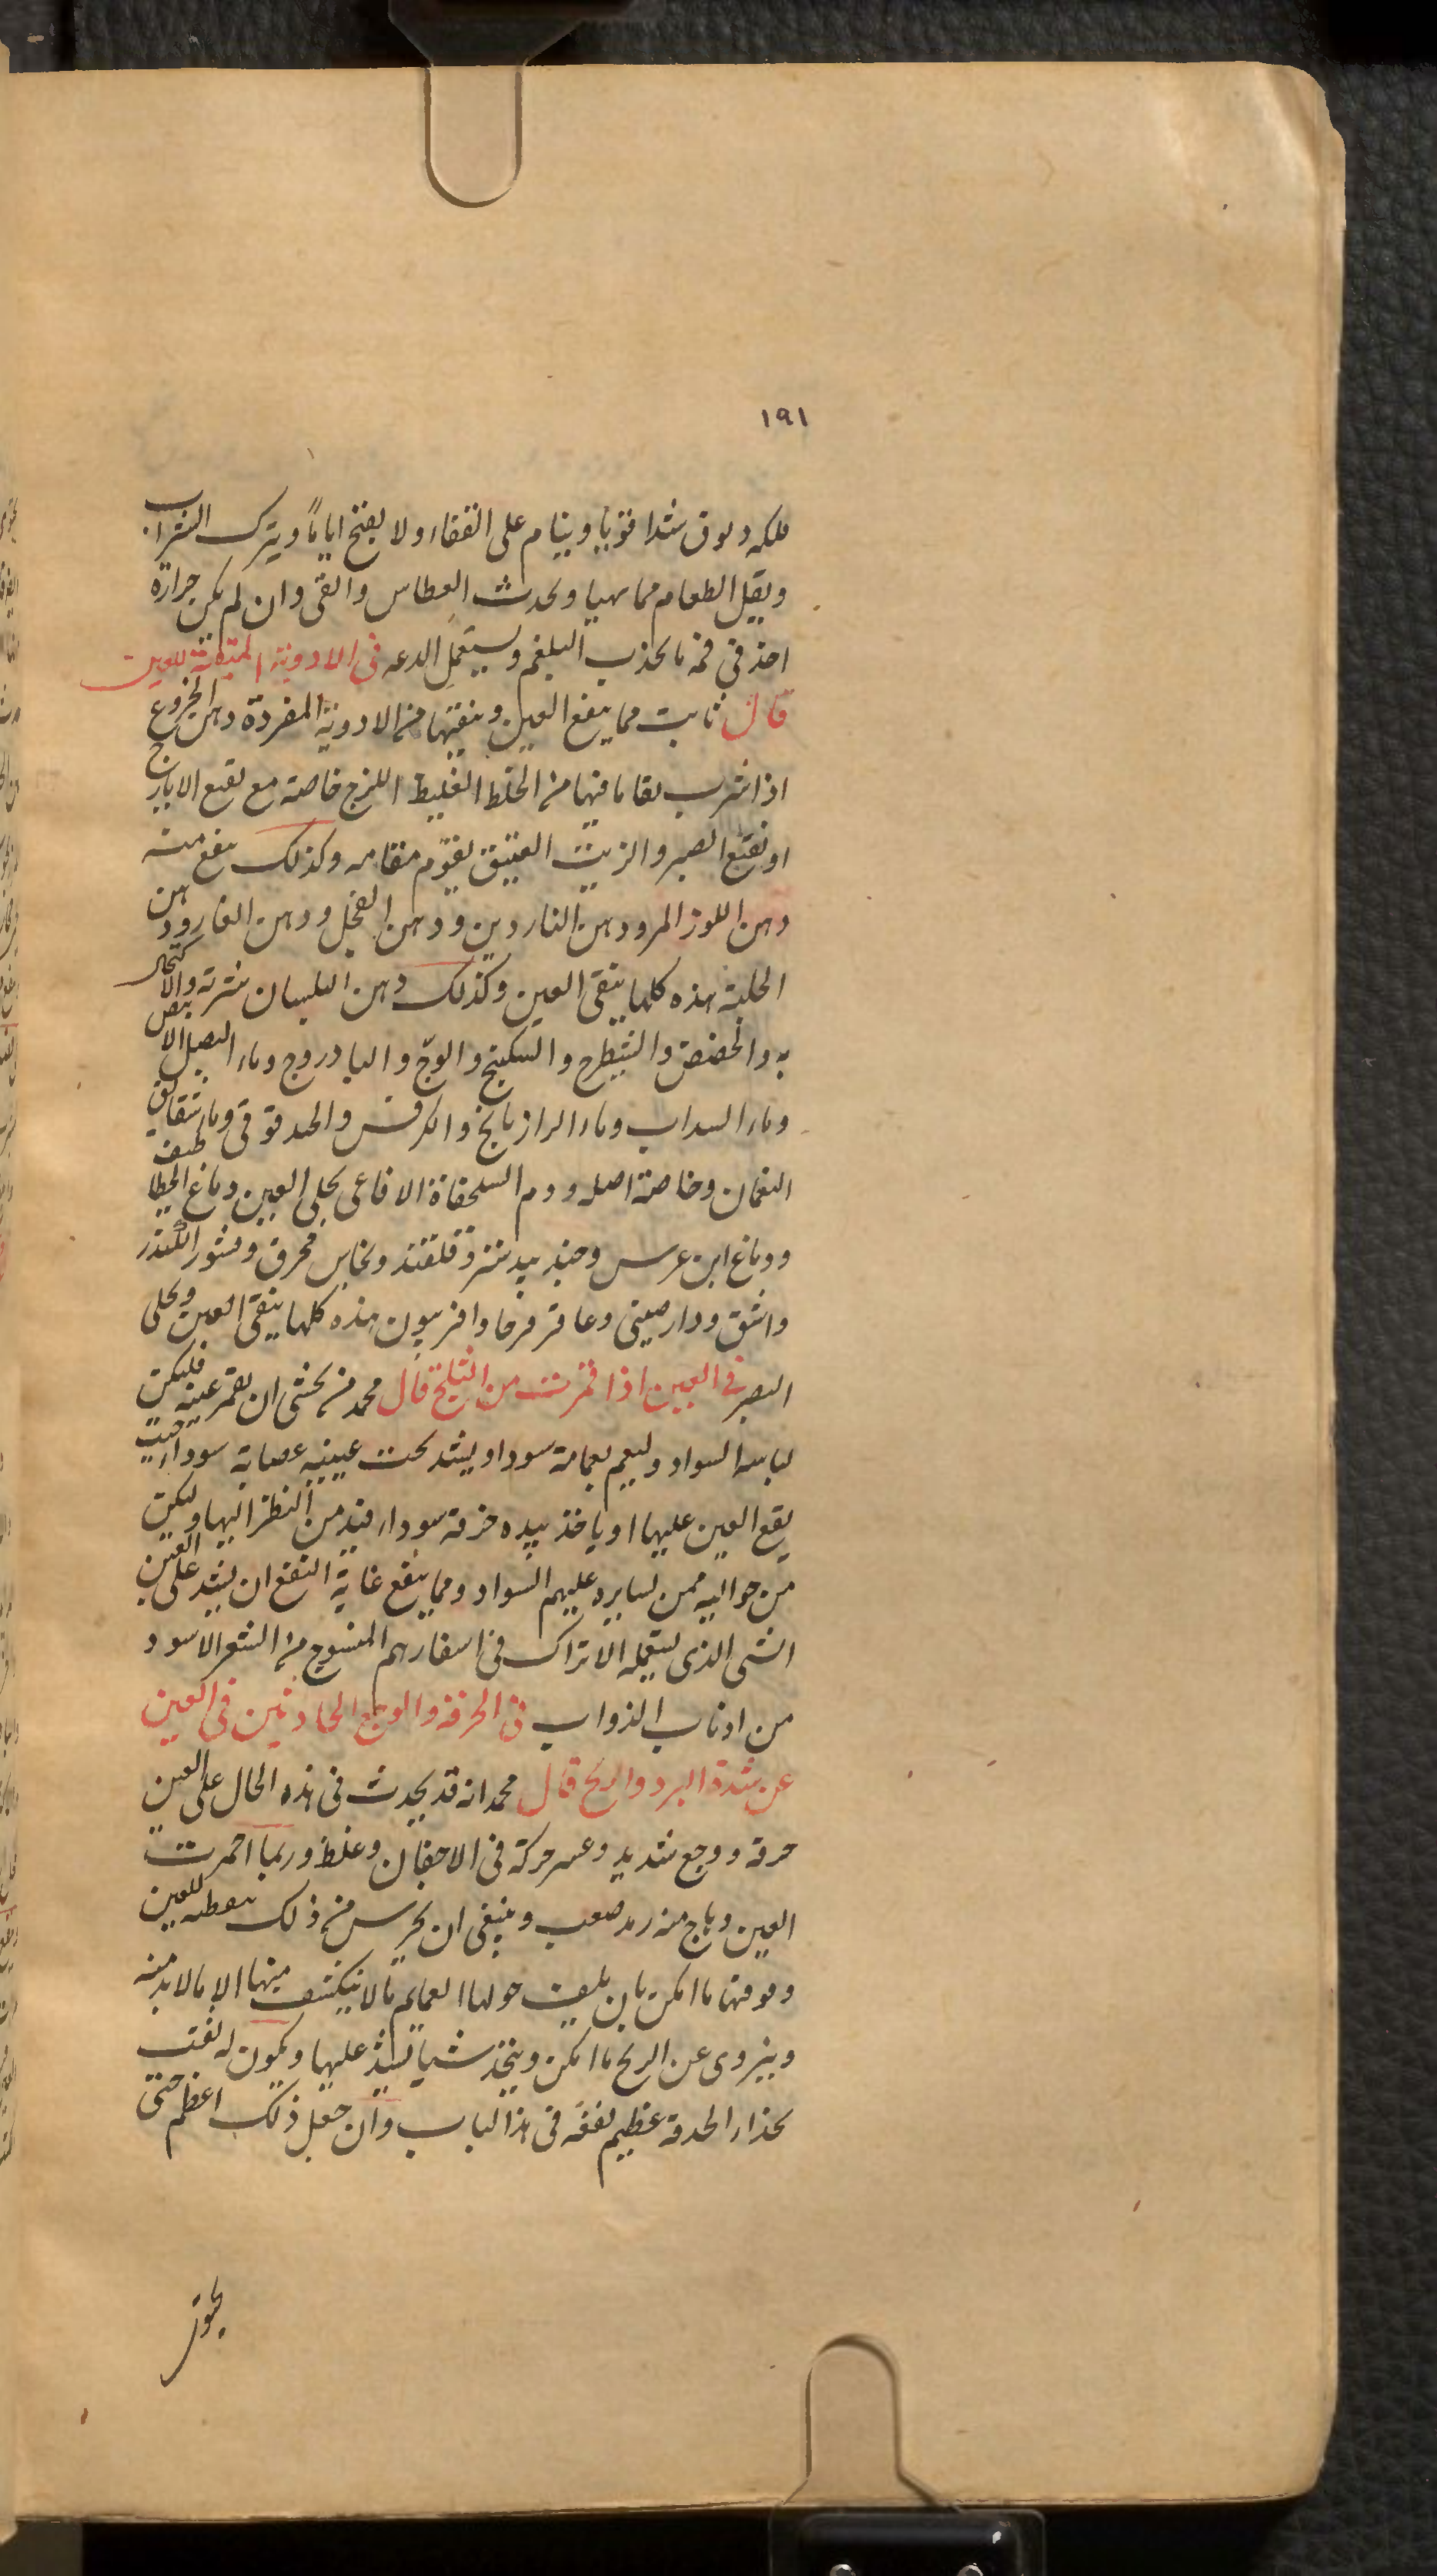 ١٩١
شدا قويا وينام على القفاء ولا يفتح اياماً ويترك الشراب
ويقل الطعام مما يهيا ويحدث العطاس والقى وان لم يكن حرارة
اخذ فى فمه ما يجذب البلغم ويستعمل الدعه فى الادوية المنقية للعين
قال ثابت مما ينفع العين وينقيها من الادوية المفردة دهن الخروع
اذا شرب نقا ما فيها من الخلط الغليظ اللزج خاصة مع نقيع الايارج
او نقيع الصبر والزيت العتيق يقوم مقامه وكذلك ينفع منه
دهن اللوز المر ودهن الناردين ودهن الفجل ودهن الغار ودهن
الحلبة هذه كلها ينقى العين وكذلك دهن البلسان شربة والاكتحال
به والحضض والشيطرج والسكبينج والوجّ والبادروج وماء البصل الابيض
وماء السداب وماء الرازيانج والكرفس والحندقوقى وماء شقايق
النعمان وخاصة اصله ودم السلحفاة الافاعى يجلى العين ودماغ الخطاطيف
ودماغ ابن عرس وجندبيدستر وقلقند ونحاس محرق وقشور الكندر
واشق ودارصينى وعاقرقرحا وافربيون هذه كلها ينقى العين ويجلى
البصر فى العين اذا قمرت من الثلج قال محمد من يخشى ان يقمر عينه فليكن
لباسه السواد وليعم بعمامة سودا ويشد تحت عينيه عصابة سوداء حيث
يقع العين عليها او ياخذ بيده خرقة سوداء فيدمن النظر اليها وليكن
من حواليه ممن يسايره عليهم السواد ومما ينفع غاية النفع ان يشد على العين
الشى الذى يستعمله الاتراك فى اسفارهم المنسوج من الشعر الاسود
من اذناب الدواب فى الحرقة والوجع الحادثين فى العين
عن شدة البرد والريح قال محمد انه قد يحدث فى هذه الحال على العين
حرقة ووجع شديد وعسر حركة فى الاجفان وغلظ وربما احمرت
العين وهاج منه رمد صعب وينبغى ان يحرس من ذلك للعين
ما امكن بان يلف حولها العمايم ما لا ينكشف منها الا ما لا بد منه
وينزوى عن الريح ما امكن ويتخذ شيا يشد عليها ويكون له ثقب
بحذاء الحدقة عظيم نفعه فى هذا الباب وان جعل ذلك اعظم حتى